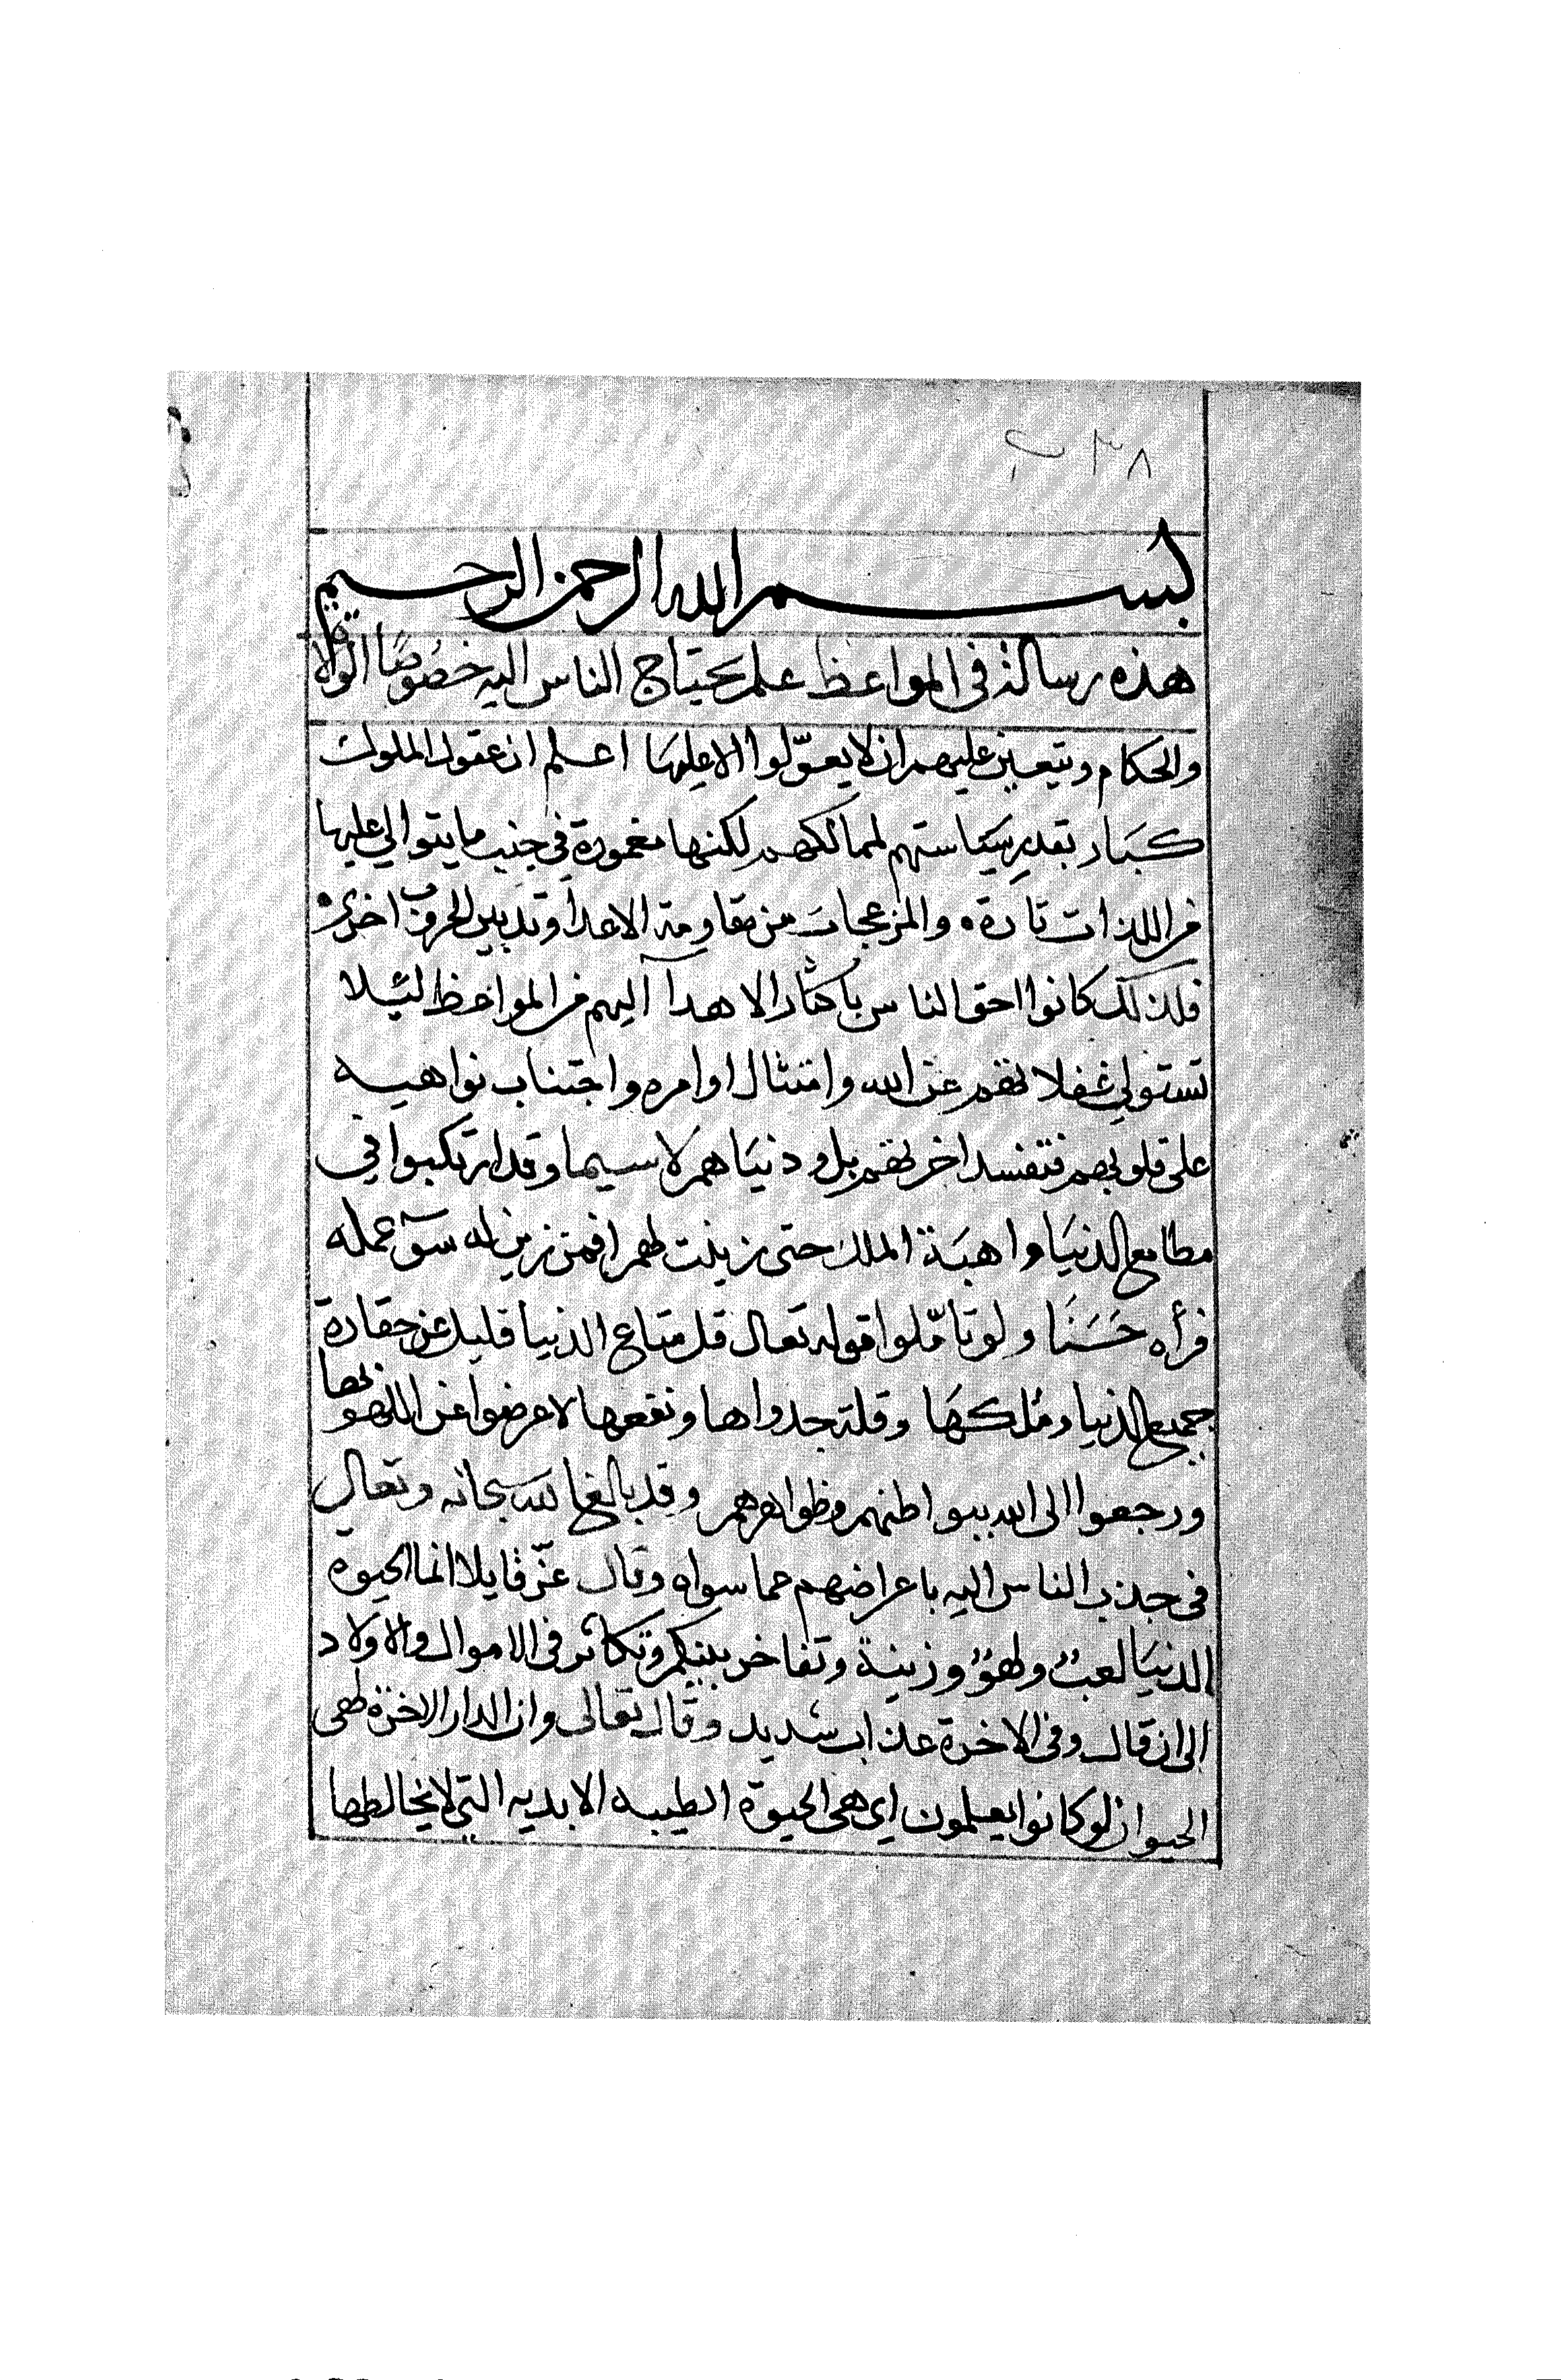 بسم الله الرحمن الرحيم
هذه رسالة في المواعظ علم يحتاج الناس اليه خصوصًا الولاة
والحكام ويتعين عليهم ان لا يعوّلوا الا عليها اعلم ان عقول الملوك
كبار بقدر سياستهم لممالكهم لكنها مغمورة في جنب ما يتوالي عليها
من اللذات تارة والمزعجات من مقاومة الاعدا وتدبير الحروب اخرى
فلذلك كانوا احق الناس باكثار الاهدآ اليهم من المواعظ لئلا
تستولي غفلاتهم عن الله وامتثال اوامره واجتناب نواهيه
على قلوبهم فتفسد اخرتهم بل ودنياهم لا سيما وقد ارتكبوا في
مطامع الدنيا واهبة الملك حتى زينت لهم افمن زين له سوٓ عمله
فرأه حَسَنَا ولو تامّلوا قوله تعال قل متاع الدنيا قليل عن حقارة
جميع الدنيا وملكها وقلة جدواها ونفعها لاعرضوا عن اللهو بها
ورجعوا الى الله ببواطنهم وظواهرهم وقد بالغ الله سبحانه وتعالى
في جذب الناس اليه باعراضهم عما سواه وقال عزّ قايلا انما الحيوة
الدنيا لعبٌ ولهوٌ وزينة وتفاخر بينكم وتكاثر في الاموال والاولاد
الى ان قال وفي الاخرة عذاب شديد وقال تعالى وان الدار الاخرة لهى
الحيوان لو كانوا يعلمون اي هى الحيوة الطيبه الابديه التي لا يخالطها